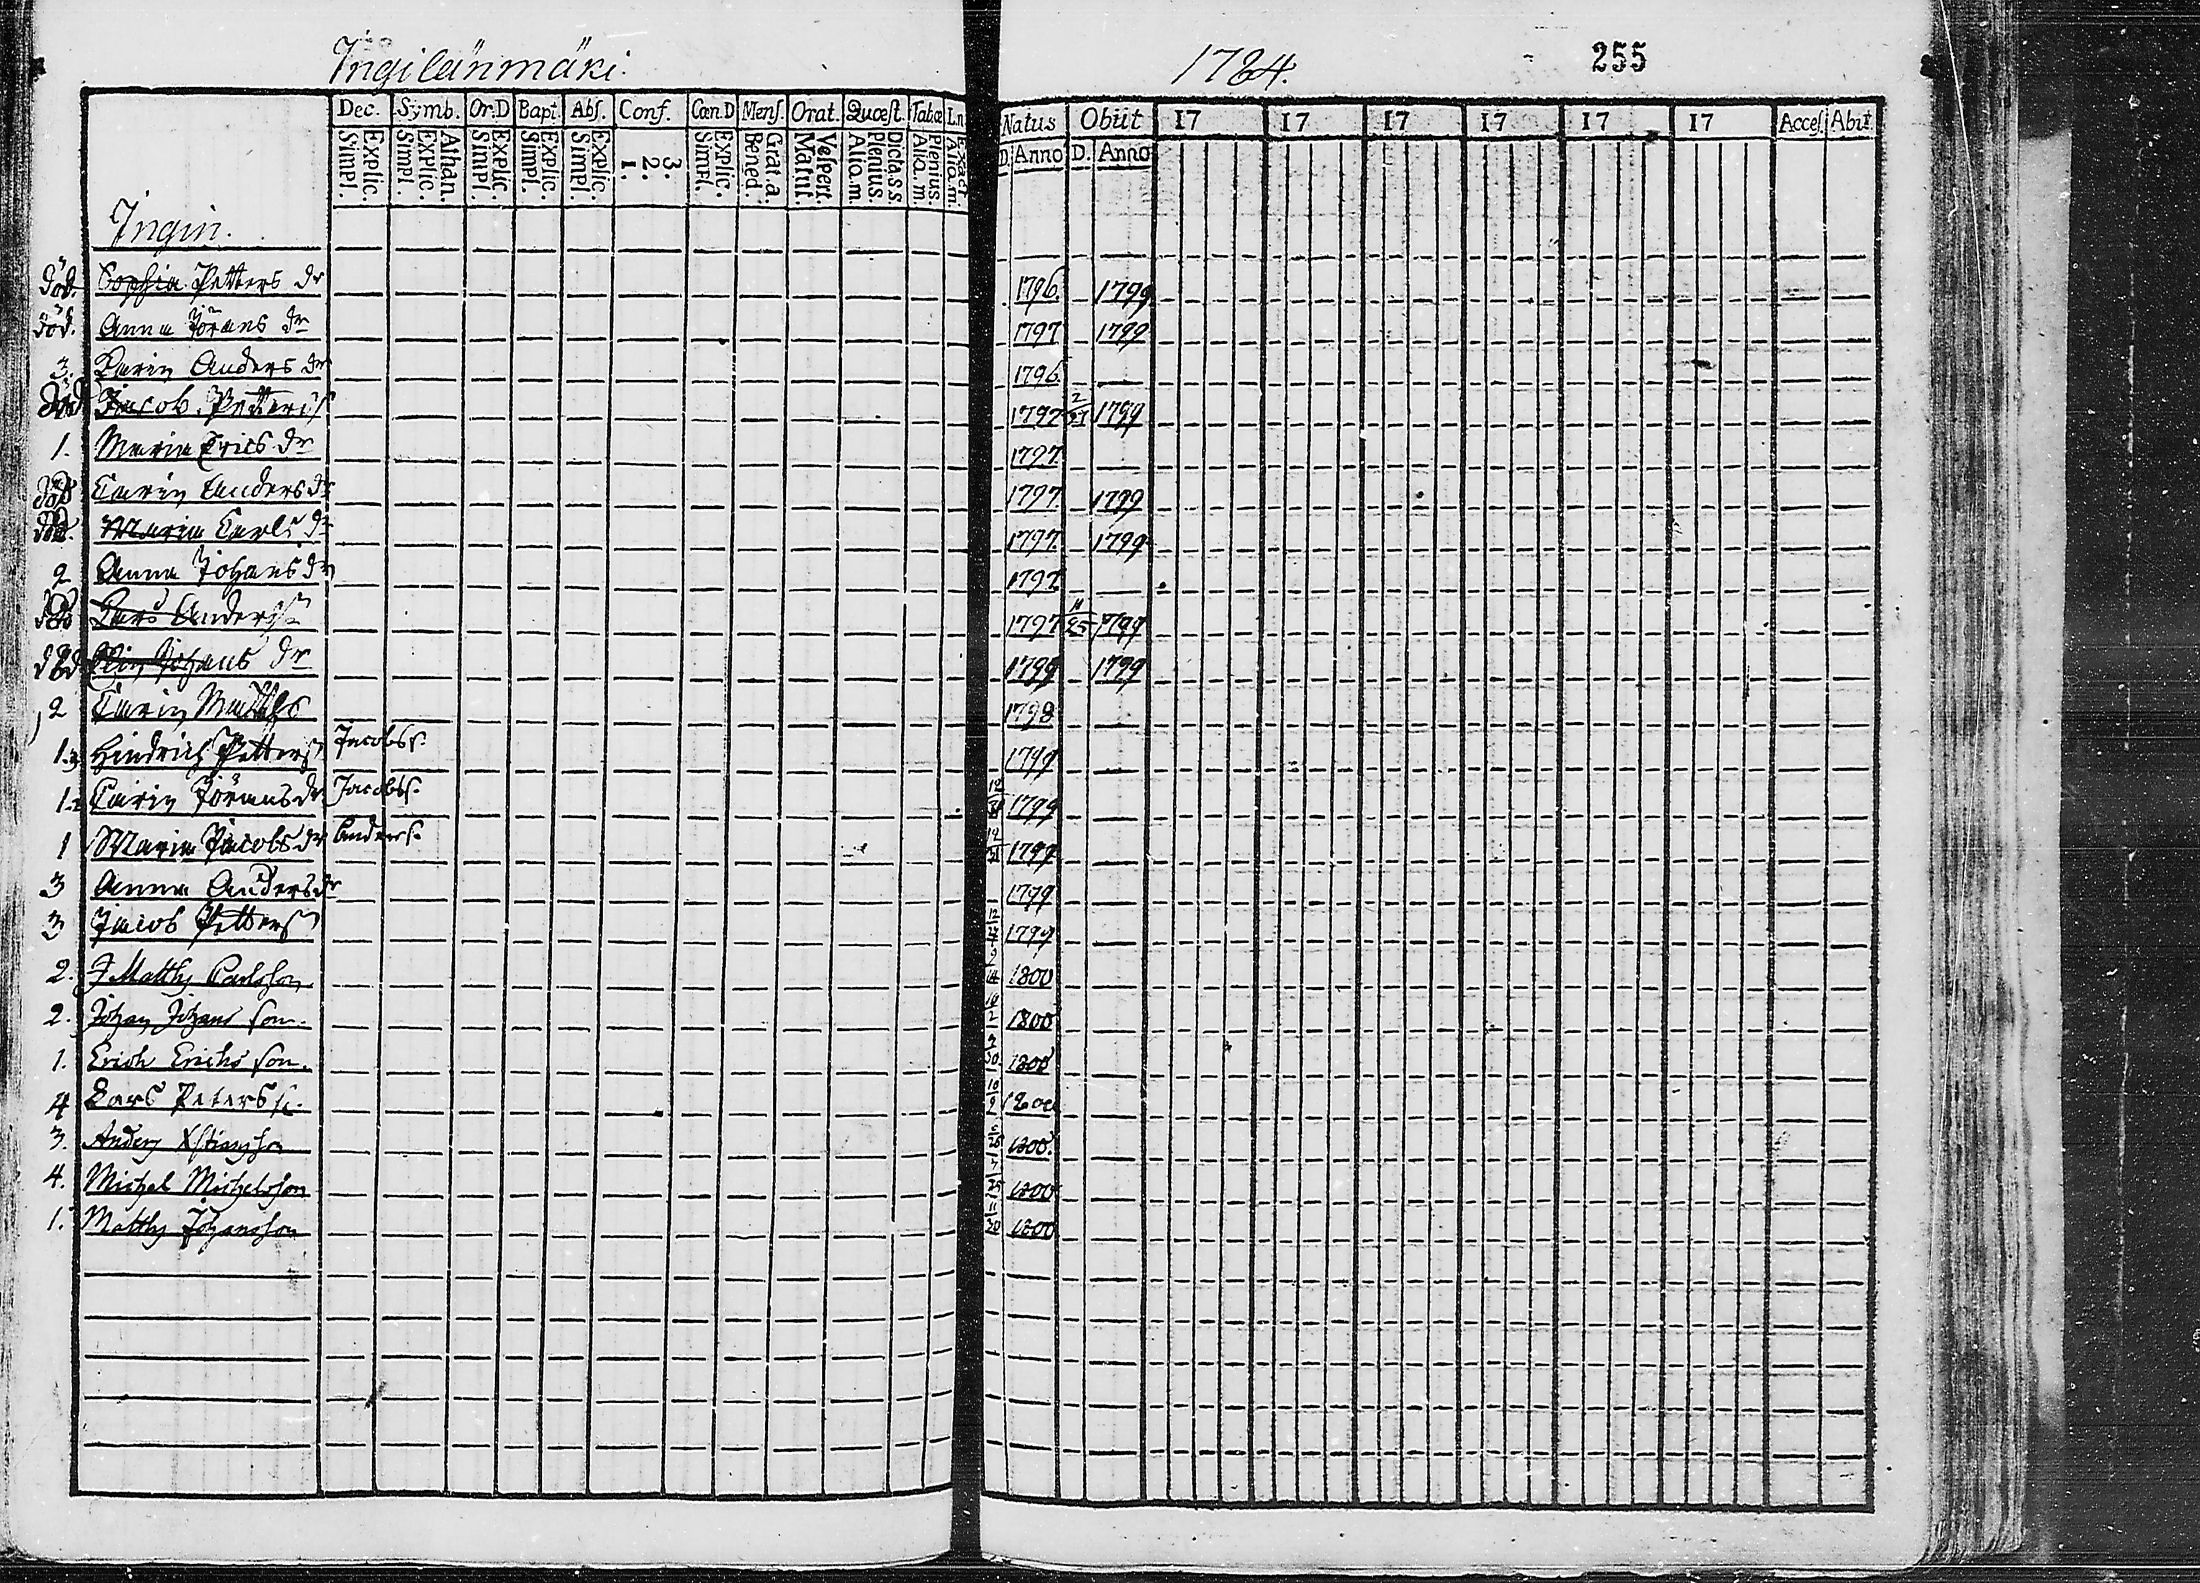 Ingilänmäki. 1784. 255
Dec. Symb. Or.D Bapt. Abs. Conf. Cœn.D Mens. Orat. Quœst. Tabœ In
Natus Obiit 17 17 17 17 17 17 Acces. Abiit
Simpl. Explic. Simpl. Explic. Athan. Simpl. Explic. Simpl. Explic. Simpl. Explic. 1. 2. 3. Simpl. Explic. Bened. Grat.a. Matut. Vespert. Alio.m. Plenius Dict.s.s. Alio.m Plenius. Alio.m. Exact
D. Anno D. Anno
Ingin.
död. Sophia Petters dr 1796. 1799
död. Anna Jörans dr 1797 1799
3. Carin Anders dr 1796
död Jacob Petterss 1797 2/27 1799
1. Maria Erics dr 1797.
död Carin Anders dr 1797. 1799
död. Maria Carls dr 1797. 1799
2 Anna Johans dr 1797
död Lars Anderss 1797 11/25 1799
död Johans dr 1799 1799
2 Carin Matths 1798
1. Hindrich Petterss Jacobss. 1799
1. Carin Jörans dr Jacobss. 12/31 1799
1 Maria Jacobs dr Anderss. 1799
3 Anna Anders dr 1799
3 Jacob Petterss 1799
2. Matths Carlsson 9/14 1800
2. Johan Johans son. 10/2 1800
1. Erich Erichs son. 9/30. 1800
4 Lars Peters s. 10/9 1800
3. Anders Xstiansson 1800.
4. Michel Michelsson 1800
1. Matths Johansson 11/20 1800